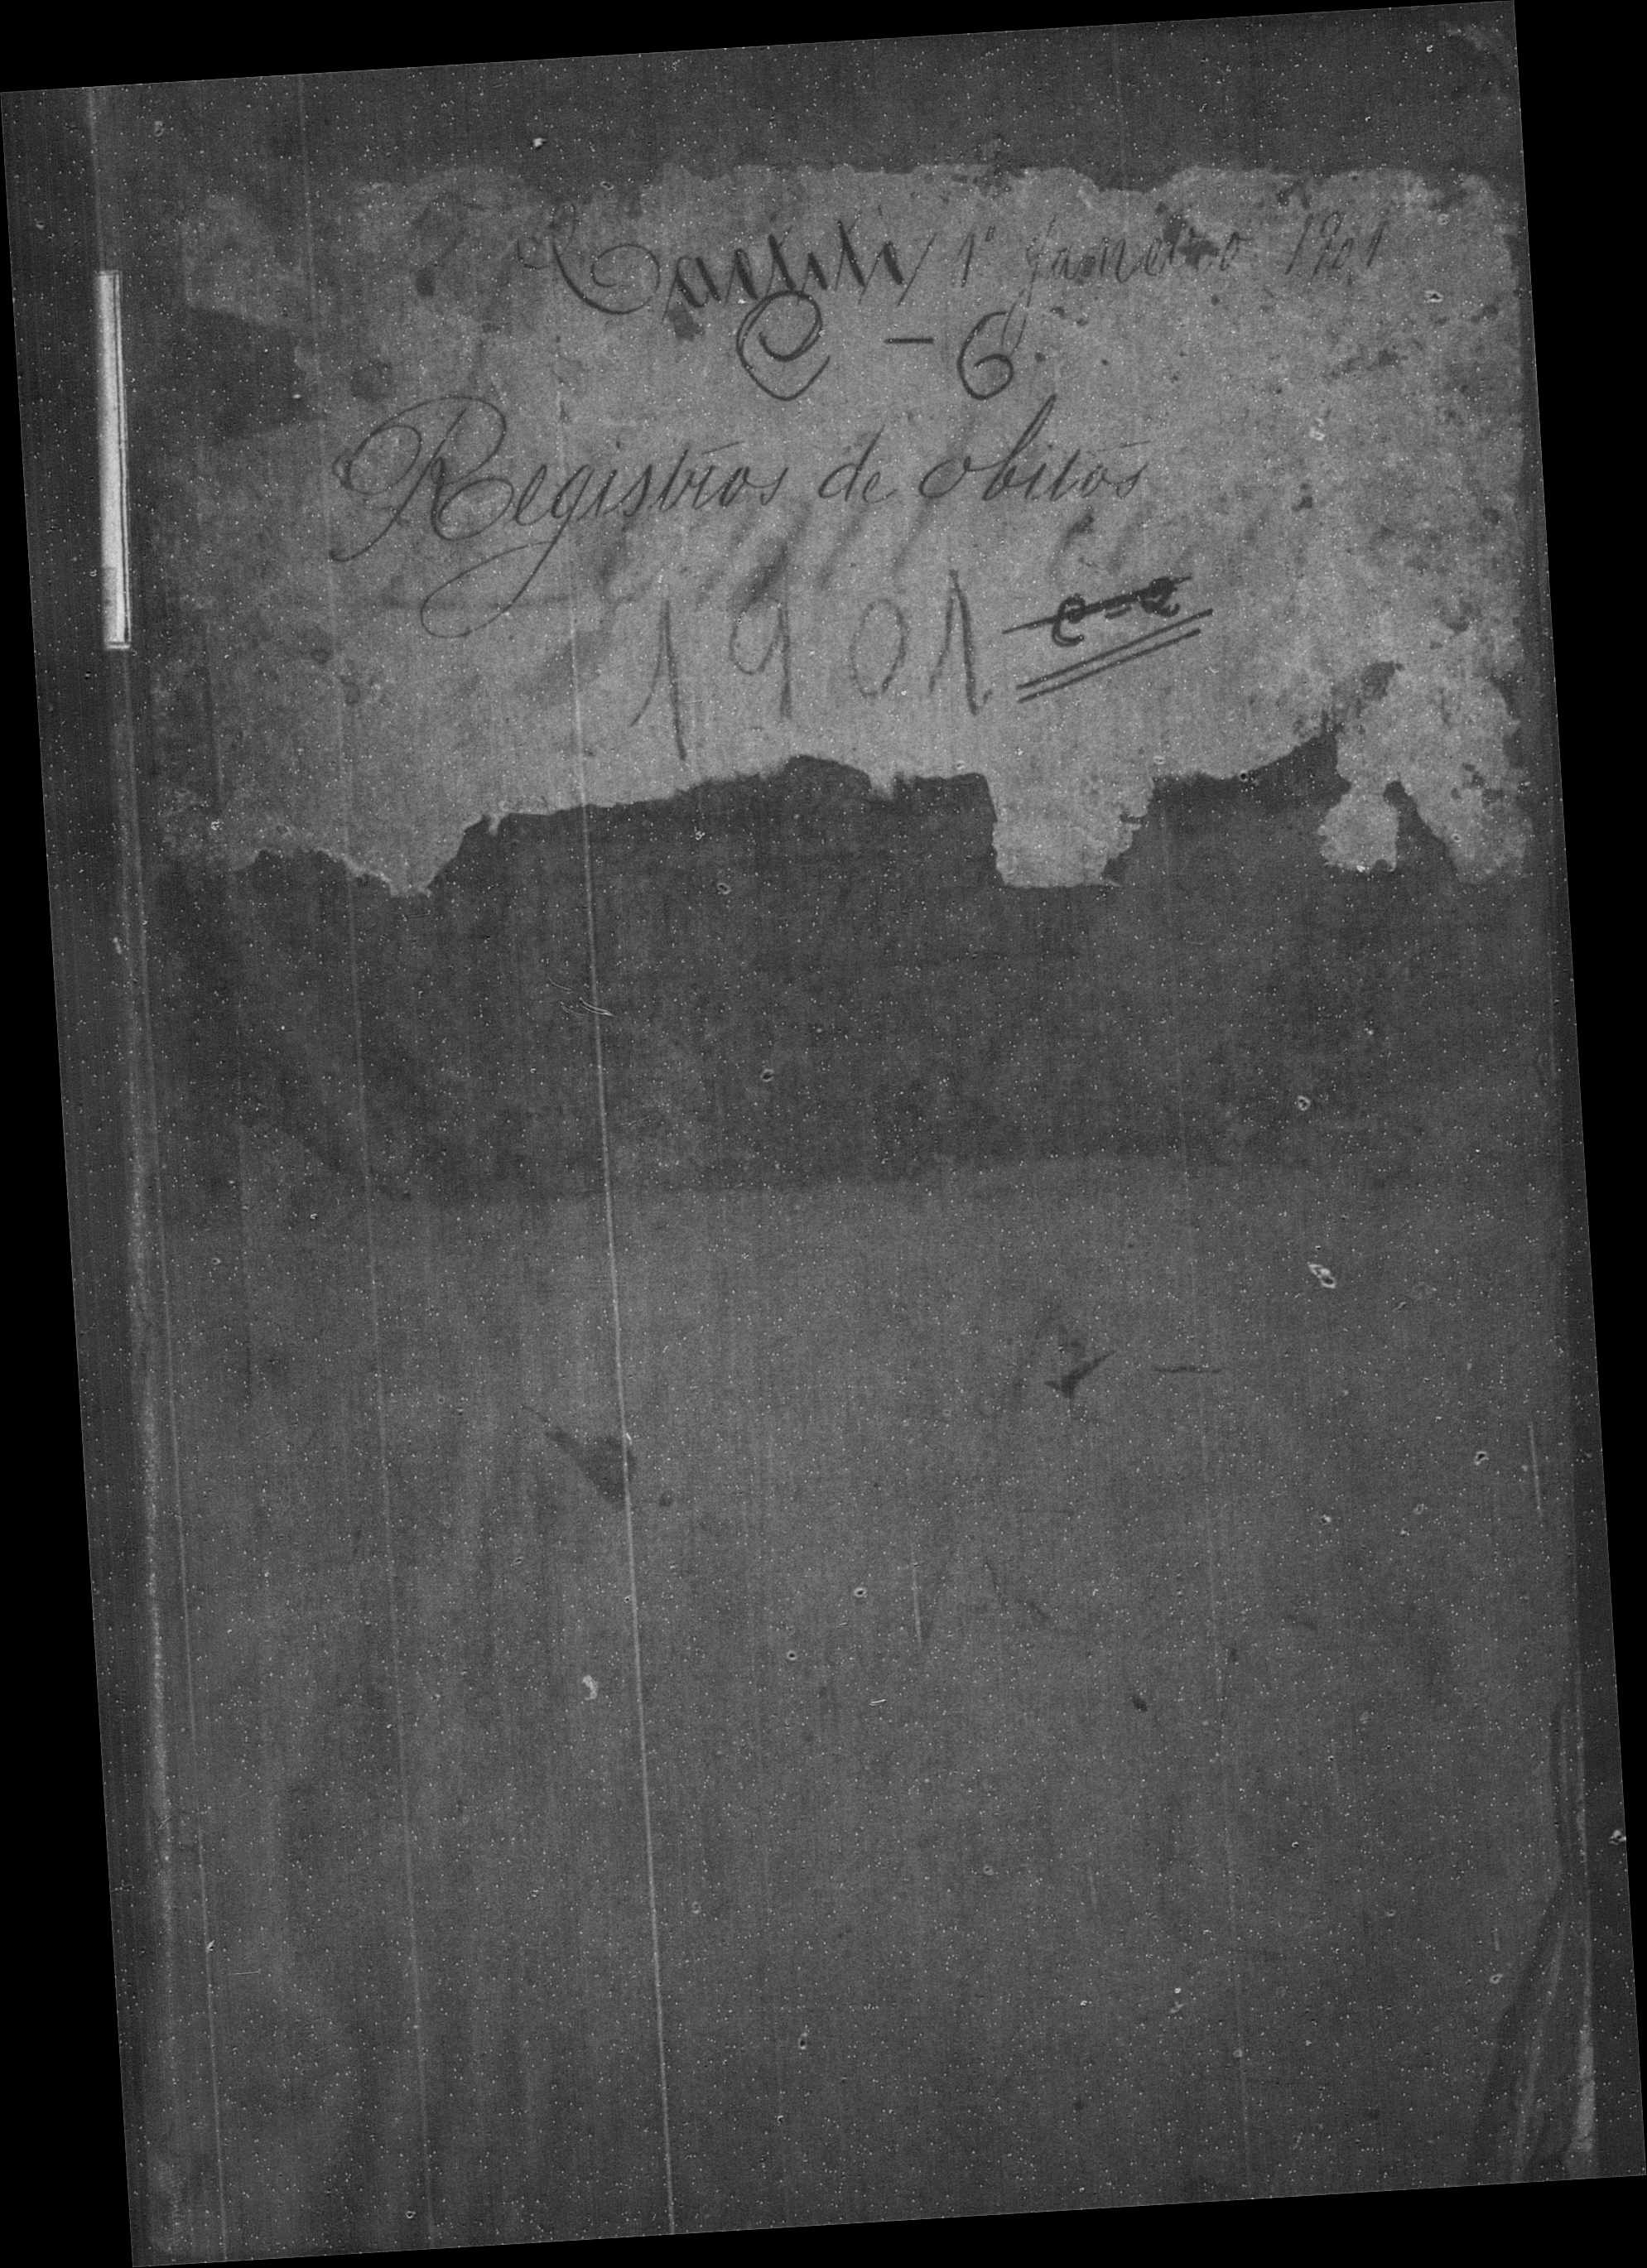 1º Janeiro 1901
C - 6
Registros de obitos
1901 C-2